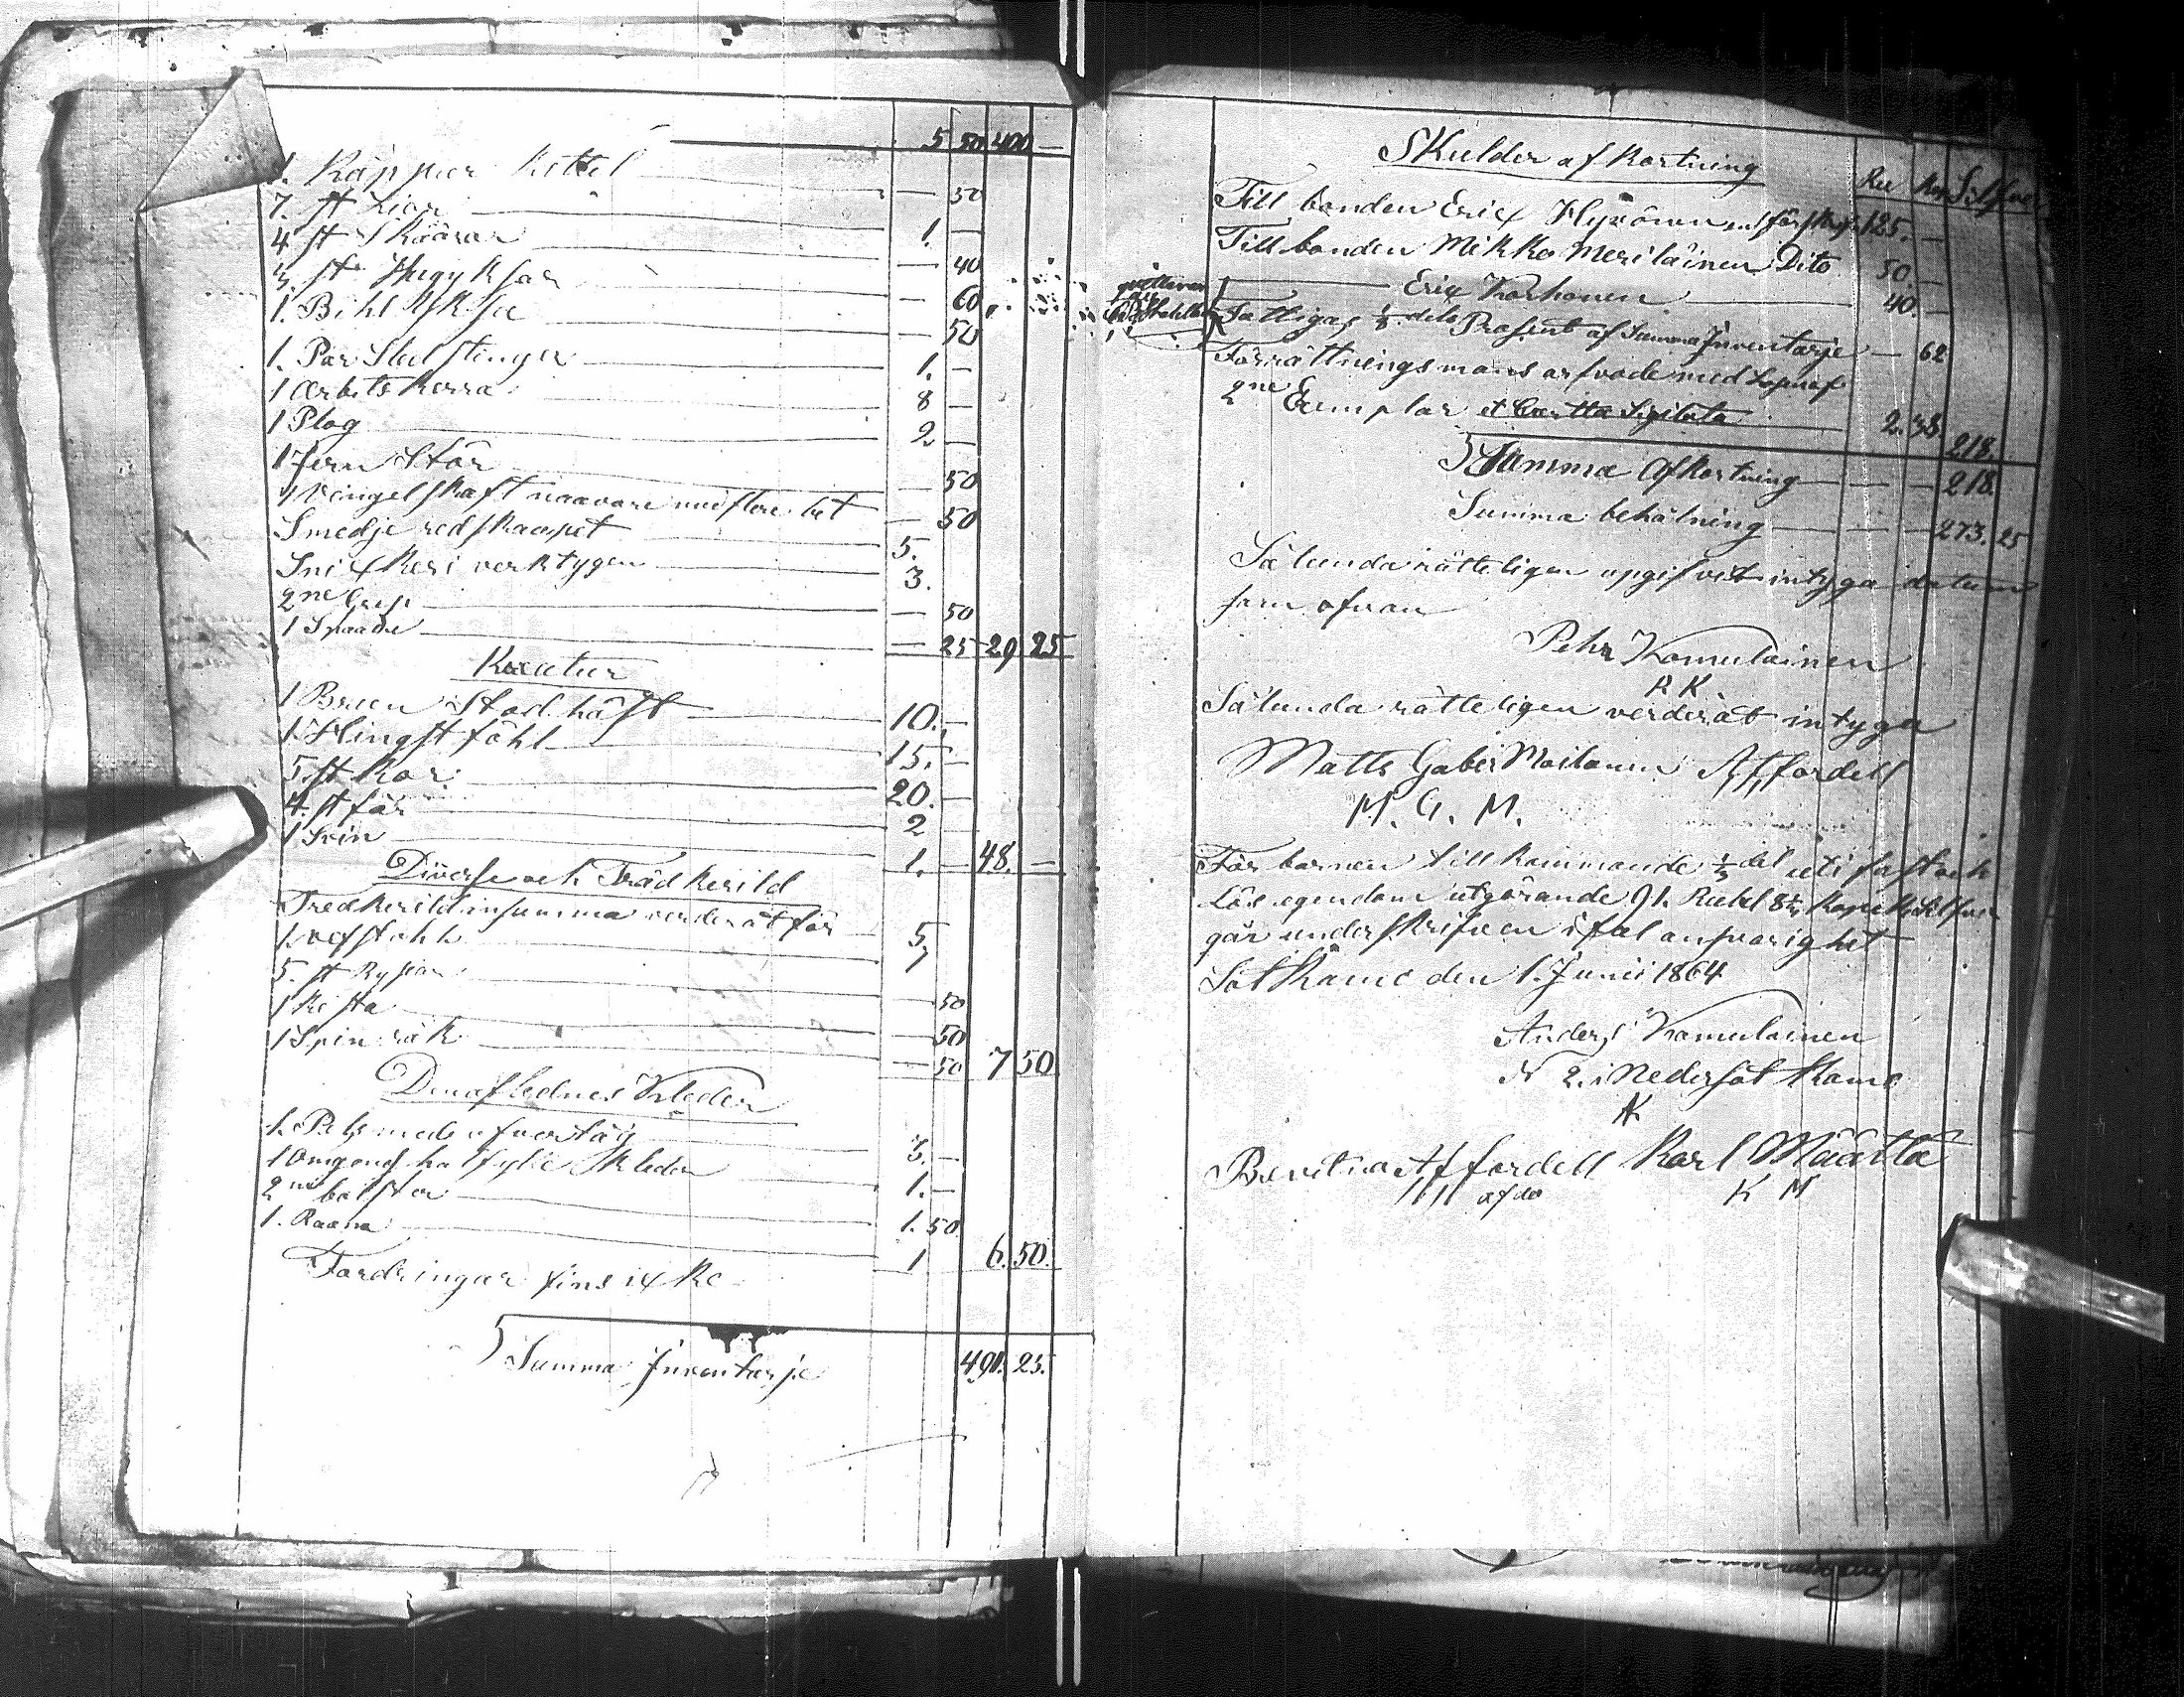 5 50 400 —
1. Käppar Kettel — 50
7. st Liar 1. —
4 st Skäärar — 40
3. st Hugyksar — 60
1. Bihl yksa — 50
1. Par Slä stenger 1. —
1 Arbets Kerra 8 —
1 Plog 2 —
1 Jern Stör — 50
1 Vingelskaft naavare med flere bet — 50
Smedje redskaapet 5.
Snixkeri verktygen 3.
2ne — 50
1 Spaade — 25 29 25
Kreatur
1 Brun Stod häst 10. —
1 Hingst föhl 15. —
5. st Kor 20. —
4. st får 2
1 Svin 1. — 48. —
Diverse och Trädkerild
Tredkerild insumma verderät för 5
1. vefstohl 1
5. st Ryssar — 50
1 Kista — 50
1 Spin räk — 50 7 50
Den aflednes Kleder
1. Pels med ofvertåg 3. —
1 Omgong halfylle Kleder 1. —
2ne bolster 1. 50
1. Raana 1 6. 50.
Fordringar fins ixke
Summa Inventarje 491. 25.
Skulder af Kortning
Rub Kop Silfver
Till bonden Eric Hyxönen 125. —
Till bonden Mikko Meriläinen Dito 50. —
Eric Korhonen 40. —
qvitteras
Fattigas 1/8 dels Prosent af Summa Inventarje — 62
Förrättningsmans arfvode med
2ne Exemplar et Cartta Sigilata 2. 38. 218.
Summa Afkortning — — 218.
Summa behålning — 273. 25
Sålunda rätteligen upgifvet intyga datum
som ofvan
Pehr Komulainen
P. K.
Sålunda rätteligen verderät intyga
Matts Gaber Moilanen A Affordell
M. G. M.
För barnen tillkommande 1/3 del uti fast och
Lös egendom utgörande 91. Rubl 8 1/3 Kopek Silfver
går underskrifven i ful ansvarighet
Sotkamo den 1. Junii 1864
Anders Komulainen
N 2. i Nedersotkamo
AK
Bevitna Affordell Karl Määttä
K M